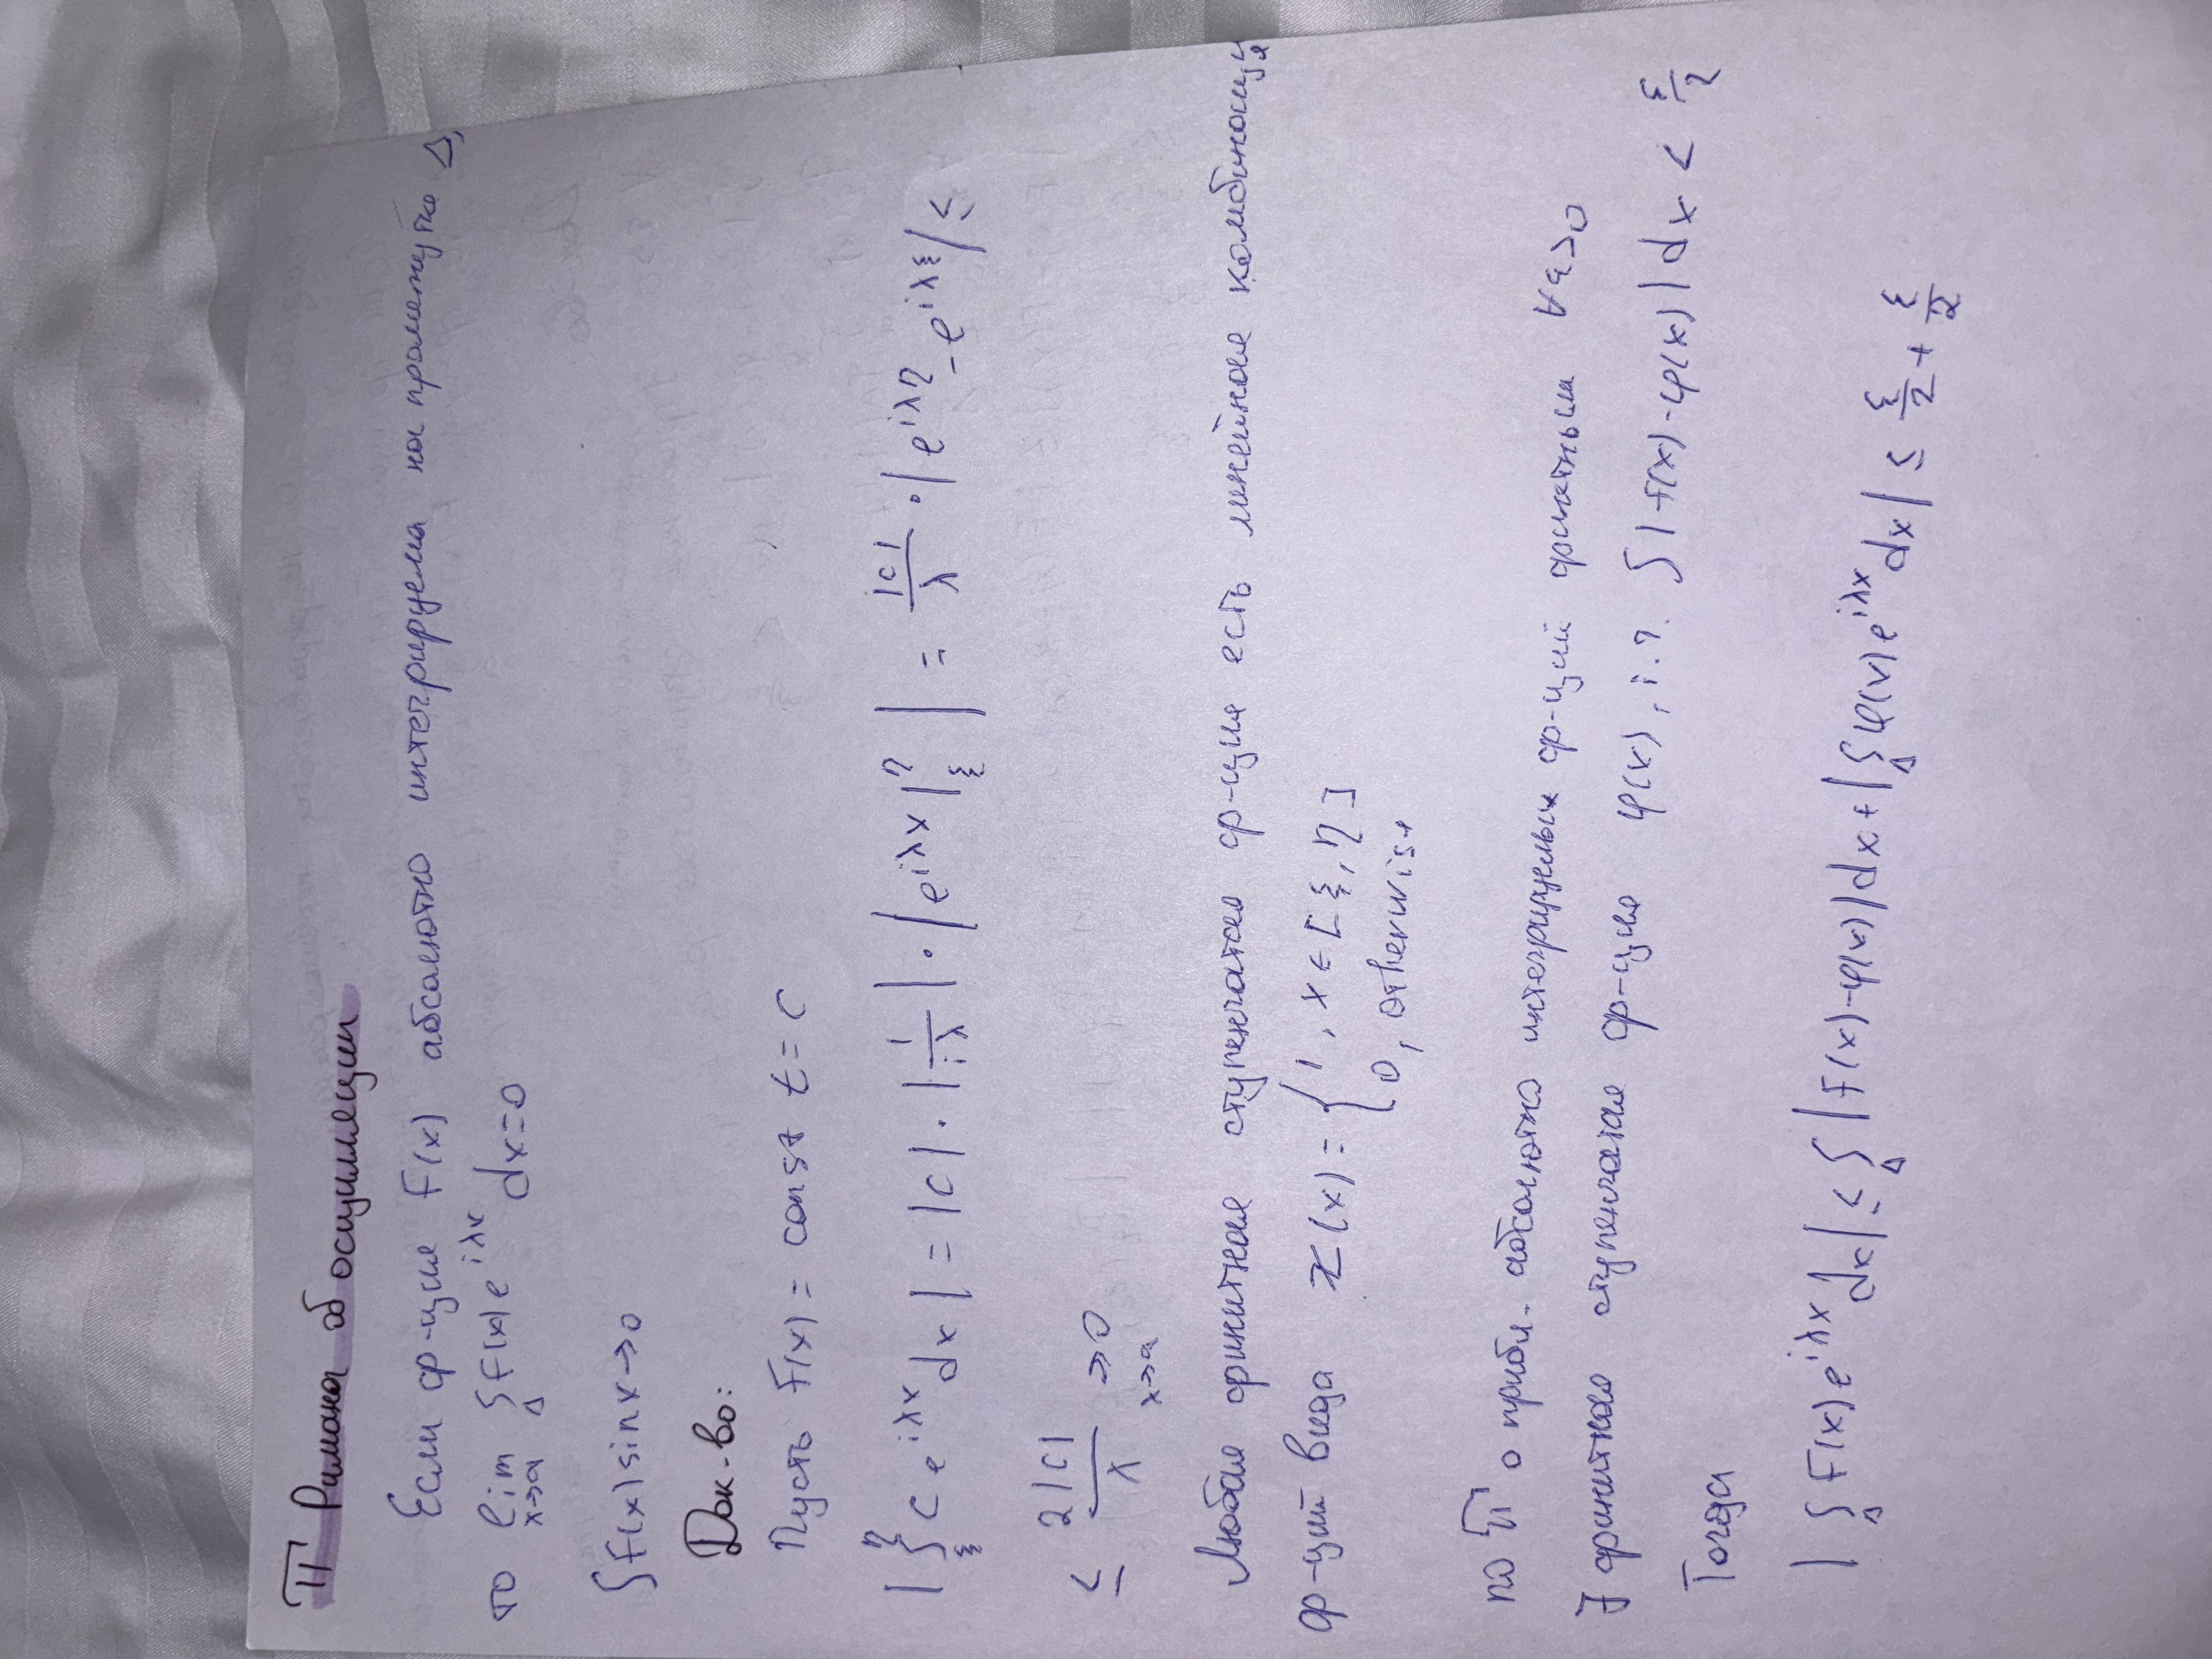 Т Римана об осцилляции
Если ф-ция F(x) абсолютно интегрируема на промежутке Δ,
то lim ∫ F(x) e^{iλx} dx = 0
x→a Δ
∫ F(x) sin x → 0
Док-во:
Пусть F(x) = const t = c
| ∫_ξ^η c e^{iλx} dx | = |c| · | 1/iλ | · | e^{iλx} |_ξ^η | = |c|/λ · | e^{iλη} - e^{iλξ} | ≤
≤ 2|c|/λ → 0
λ→a
Любая финитная ступенчатая ф-ция есть линейная комбинация
ф-ций вида χ(x) = { 1, x ∈ [ξ, η]
0, otherwise
по Т о прибл. абсолютно интегрируемых ф-ций финтными ∀ε>0
∃ финитная ступенчатая ф-ция φ(x), ∫ | f(x) - φ(x) | dx < ε/2
Тогда
| ∫_Δ F(x) e^{iλx} dx | ≤ ∫_Δ | f(x) - φ(x) | dx + | ∫_Δ φ(x) e^{iλx} dx | ≤ ε/2 + ε/2